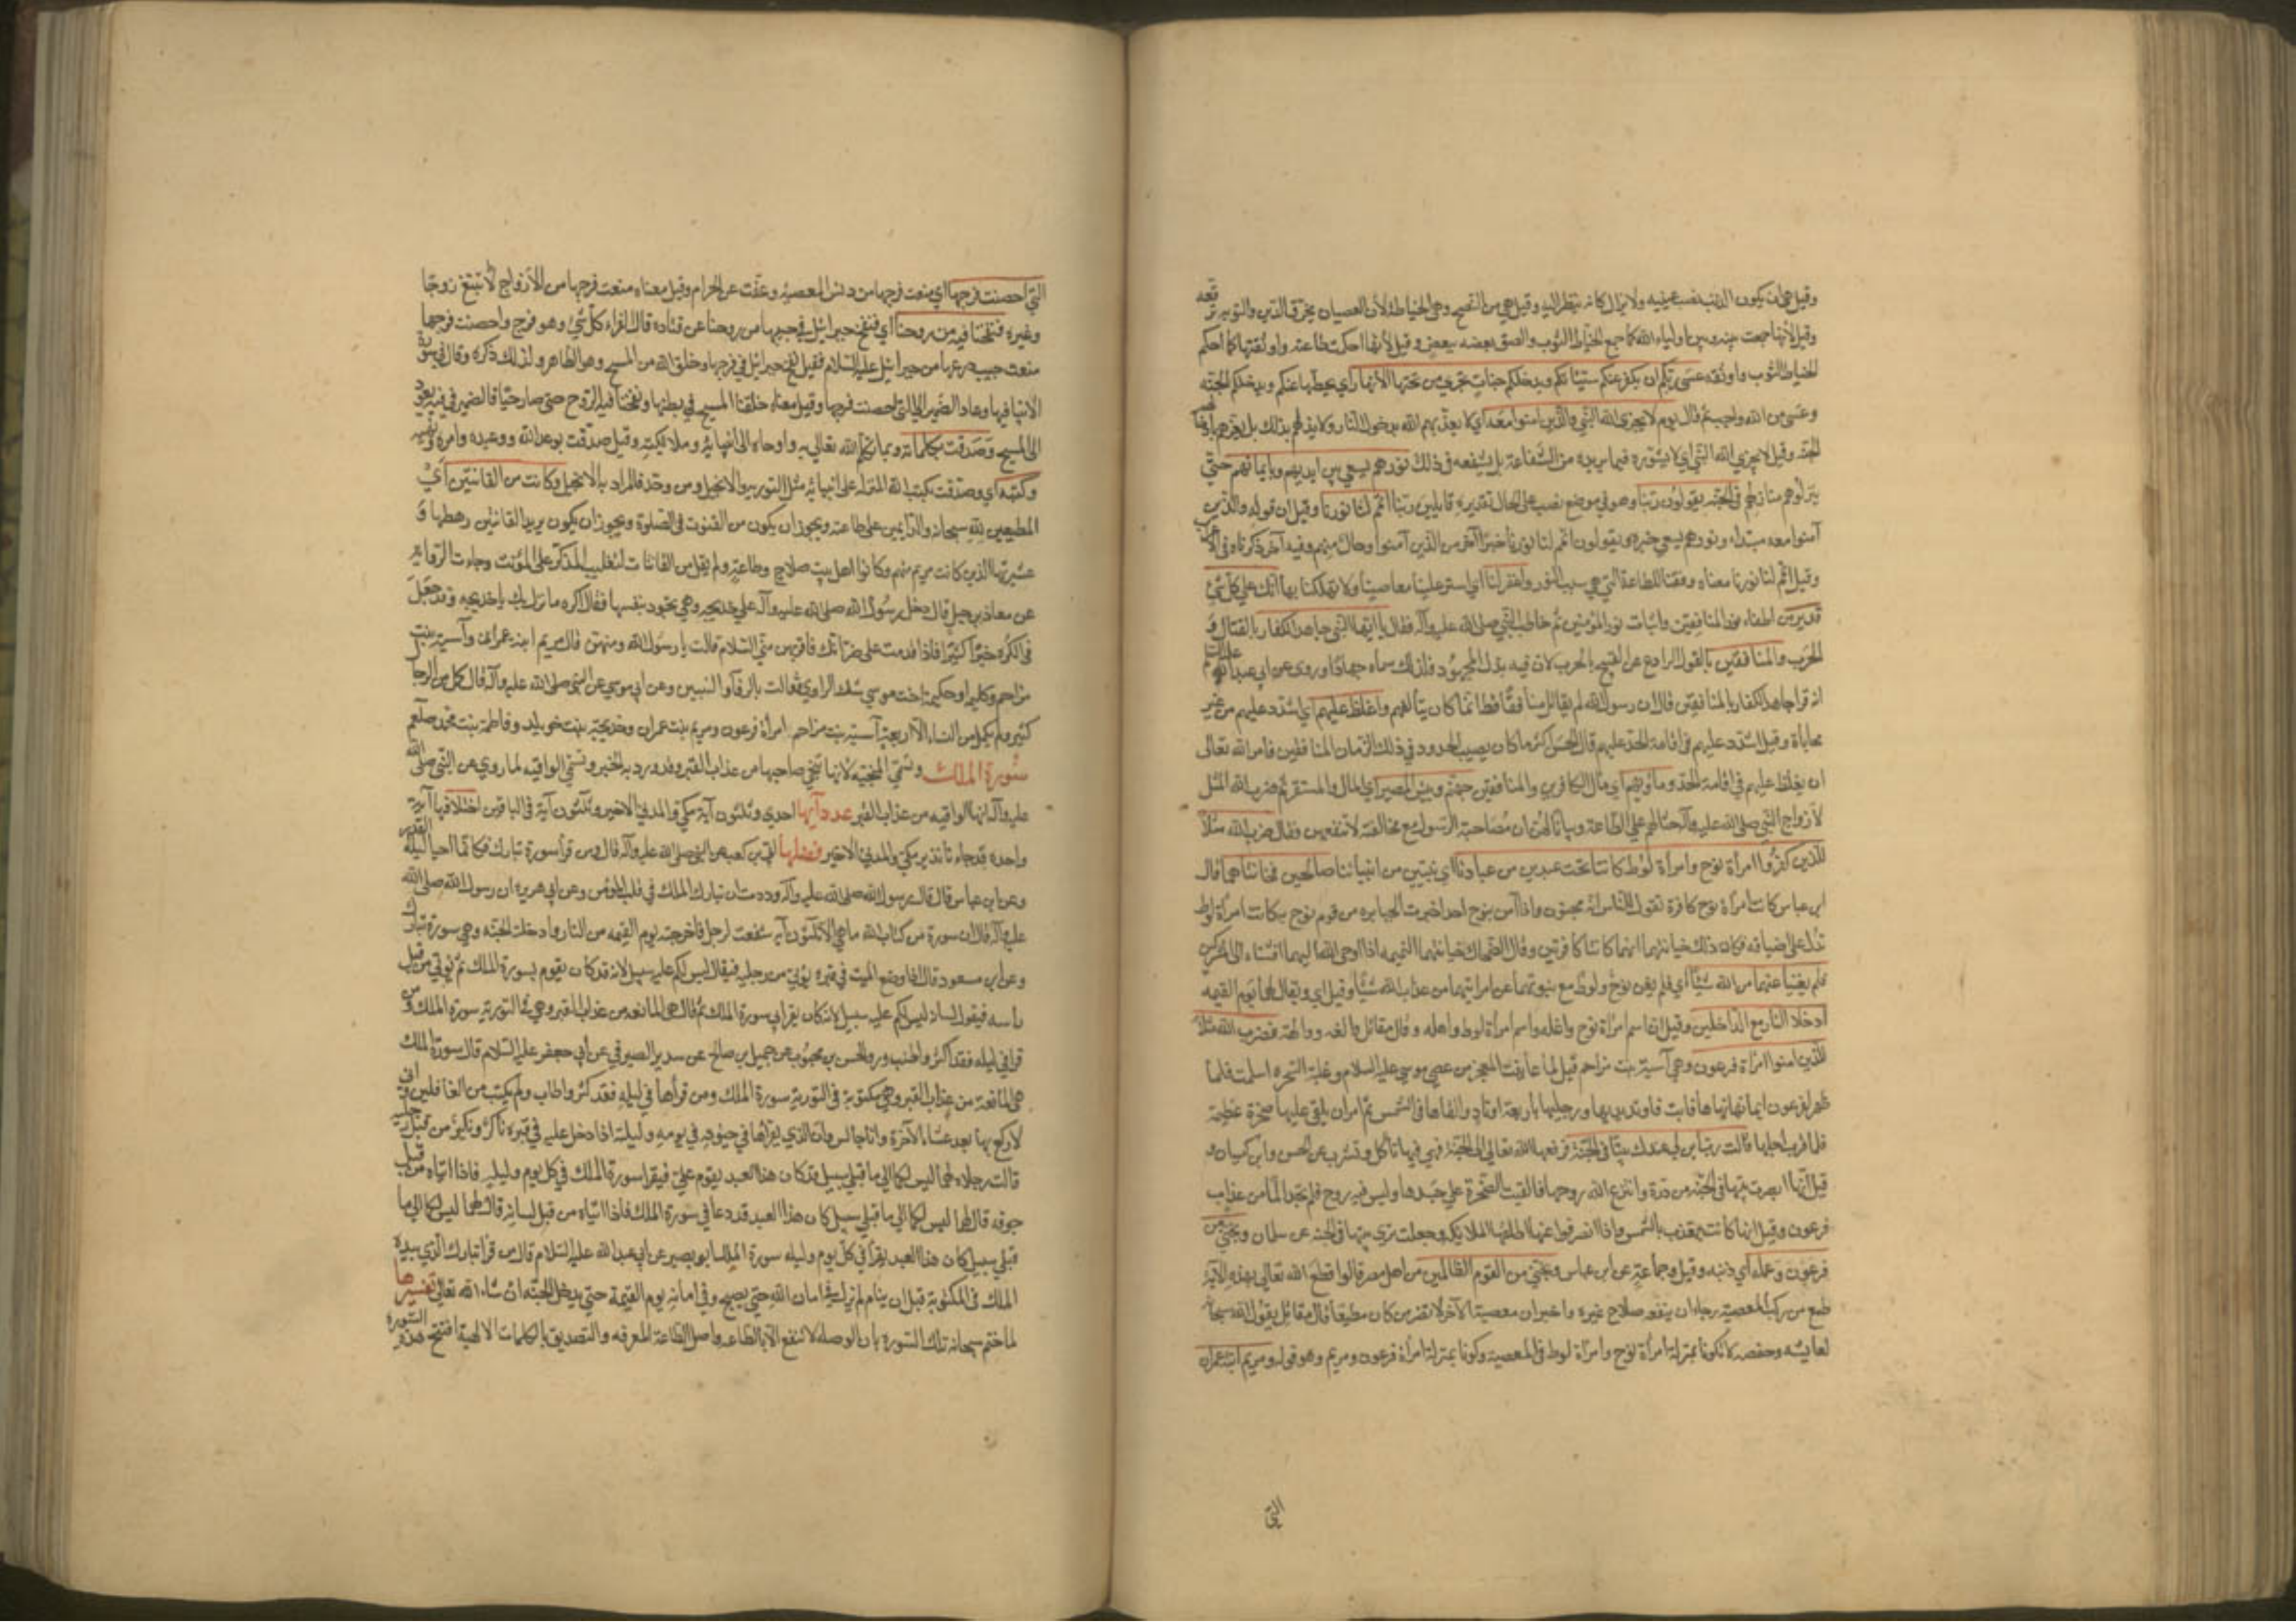 وقيل هي ان يكون الذنب نصب عينيه ولا يزال كانه ينظر اليه وقيل هي من النصح وهي الخياطة لأن العصيان يخرق الدين والتوبة ترقعه
وقيل لأنها جمعت بينه وبين اولياء الله كما جمع الخياط الثوب والصق بعضه ببعض وقيل لأنها احكمت طاعته واوثقتها كما احكم
الخياط الثوب واوثقه عسى ربكم ان يكفر عنكم سيئاتكم ويدخلكم جنات تجري من تحتها الأنهار اي يحطها عنكم ويدخلكم الجنة
وعسى من الله واجب ثم قال يوم لا يخزي الله النبي والذين امنوا معه اي لا يعذبهم الله بدخول النار ولا يذلهم بذلك بل يعزهم بادخالهم
الجنة وقيل لا يخزي الله النبي اي لا يشوره فيما يريده من الشفاعة بل يشفعه في ذلك نورهم يسعى بين ايديهم وبايمانهم حتى
ينزلوهم منازلهم في الجنة يقولون ربنا وهو في موضع نصب على الحال تقديره قايلين ربنا اتمم لنا نورنا وقيل ان قوله والذين
آمنوا معه مبتداء ونورهم يسعى خبره ويقولون اتمم لنا نورنا خبرا آخر من الذين آمنوا وحال منهم وفيه آخر ذكرناه في
وقيل اتمم لنا نورنا معناه وفقنا للطاعة التي هي سبب النور واغفر لنا اي استر علينا معاصينا ولا تهلكنا بها انك على كل شيء
قدير من اطفاء نور المنافقين واثبات نور المؤمنين ثم خاطب النبي صلى الله عليه وآله فقال يا ايها النبي جاهد الكفار بالقتال و
الحرب والمنافقين بالقول الرادع عن القبيح لا بالحرب لأن فيه بذل المجهود فلذلك سماه جهادا وروى عن ابي عبد الله عليه السلام
انه قرا جاهد الكفار بالمنافقين قال ان رسول الله لم يقاتل منافقا قط انما كان يتألفهم واغلظ عليهم اي اشدد عليهم من غير
محاباة وقيل اشدد عليهم في اقامة الحد عليهم قال الحسن اكثر ما كان يصيب الحدود في ذلك الزمان المنافقين فامر الله تعالى
ان يغلظ عليهم في اقامة الحد وماويهم اي مآل الكافرين والمنافقين جهنم وبئس المصير اي المال والمستقر ثم ضرب الله المثل
لأزواج النبي صلى الله عليه وآله حثا لهن على الطاعة وبيانا لهن ان مصاحبة الرسول مع مخالفته لا تنفعهن وقال ضرب الله مثلا
للذين كفروا امرأة نوح وامرأة لوط كانتا تحت عبدين من عبادنا اي نبيين من انبيائنا صالحين فخانتاهما قال
ابن عباس كانت امرأة نوح كافرة تقول للناس انه مجنون واذا آمن بنوح احد اخبرت الجبابره من قوم نوح به وكانت امرأة لوط
تدل على اضيافه فكان ذلك خيانتهما لهما كانتا كافرتين وقال الضحاك خيانتهما النميمه اذا اوحى الله اليهما افشتاه الى المشركين
فلم يغنيا عنهما من الله شيئا اي فلم يغن نوح ولوط مع نبوتهما عن امراتيهما من عذاب الله شيئا وقيل اي ويقال لهما يوم القيمة
ادخلا النار مع الداخلين وقيل ان اسم امرأة نوح واغله واسم امرأة لوط واهله وقال مقاتل والغه ووالهة وضرب الله مثلا
للذين امنوا امرأة فرعون وهي آسية بنت مزاحم قيل لما عاينت المعجز من عصى موسى عليه السلام وغلبة السحره اسلمت فلما
ظهر لفرعون ايمانها نهاها فابت فاوتد يديها ورجليها باربعة اوتاد والقاها في الشمس ثم امر ان يلقى عليها صخرة عظيمة
فلما قرب اجلها قالت رب ابن لي عندك بيتا في الجنة فرفعها الله تعالى الى الجنة فهي فيها تاكل وتشرب عن الحسن وابن كيسان و
قيل انها ابصرت بيتها في الجنة من درة وانتزع الله روحها فالقيت الصخرة على جسدها وليس فيه روح فلم تجد الما من عذاب
فرعون وقيل انها كانت تعذب بالشمس واذا انصرفوا عنها اظلتها الملايكه وجعلت ترى بيتها في الجنة عن سلمان ونجني من
فرعون وعمله اي دينه وقيل وجماعة عن ابن عباس ونجني من القوم الظالمين من اهل مصر قالوا قطع الله تعالى بهذه الآية
طمع من ركب المعصية رجاء ان ينفعه صلاح غيره واخبر ان معصية الآخر لا تضر من كان مطيعا قال مقاتل يقول الله سبحانه
لعايشه وحفصه لا تكونا بمنزلة امرأة نوح وامرأة لوط في المعصية وكونا بمنزلة امرأة فرعون ومريم وهو قوله ومريم ابنت عمران
التي
التي احصنت فرجها اي منعت فرجها من دنس المعصية وعفت عن الحرام وقيل معناه منعت فرجها من الأزواج لم تبتغ زوجا
وغيره فنفخنا فيه من روحنا اي فنفخ جبرائيل في جيبها من روحنا عن قتادة قال الفراء كل شيء وهو فرج واحصنت فرجها
منعت جيب درعها من جبرائيل عليه السلام فقيل نفخ جبرائيل في فرجها وخلق الله من المسيح وهو الظاهر ولذلك ذكره وقال في سورة
الانبيا فيها وعاد الضمير الى التي احصنت فرجها وقيل معناه خلقنا المسيح في بطنها ونفخنا فيه الروح حتى صار حيا فالضمير في فيه يعود
الى المسيح وصدقت بكلمات ربها بما تكلم الله تعالى به واوحاه الى انبيائه وملائكته وقيل صدقت بوعد الله ووعيده وامره ونهيه
وكتبه اي وصدقت بكتب الله المنزله على انبيائه مثل التورية والانجيل ومن وحد فالمراد به الانجيل وكانت من القانتين اي
المطيعين لله سبحانه والدايمين على طاعته ويجوز ان يكون من القنوت في الصلوة ويجوز ان يكون يريد القانتين رهطها و
عشيرتها الذين كانت مريم منهم وكانوا اهل بيت صلاح وطاعة ولم يقل من القانتات لتغليب المذكر على المؤنث وجاءت الرواية
عن معاذ بن جبل قال دخل رسول الله صلى الله عليه وآله على خديجه وهي تجود بنفسها فقال اكره ما نزل بك يا خديجه وقد جعل
في الكره خيرا كثيرا فاذا قدمت على ضراتك فاقرئهن مني السلام قالت يا رسول الله ومن هن قال مريم ابنة عمران وآسية بنت
مزاحم وكليم او حكيمه اخت موسى شك الراوي فقالت بالرفاء والبنين وعن ابي موسى عن النبي صلى الله عليه وآله قال كمل من الرجال
كثير ولم يكمل من النساء الا اربعة آسية بنت مزاحم امرأة فرعون ومريم بنت عمران وخديجة بنت خويلد وفاطمة بنت محمد صلعم
سورة الملك وتسمى المنجية لانها تنجي صاحبها من عذاب القبر وقد ورد به الخبر وتسمى الواقيه لما روي عن النبي صلى الله
عليه وآله انها الواقيه من عذاب القبر عدد آيها احدى وثلثون آية مكي والمدني الاخير وثلثون آية في الباقين اختلافها آية
واحده قد جاءنا نذير مكي والمدني الاخير فضلها ابي بن كعب عن النبي صلى الله عليه وآله قال ومن قرأ سورة تبارك فكانما احيا ليلة القدر
وعن ابن عباس قال قال رسول الله صلى الله عليه وآله وددت ان تبارك الملك في قلب كل مؤمن وعن ابي هريرة ان رسول الله صلى الله
عليه وآله قال ان سورة من كتاب الله ما هي الا ثلثون آية شفعت لرجل فاخرجته يوم القيمه من النار وادخلته الجنة وهي سورة تبارك
وعن ابن مسعود قال اذا وضع الميت في قبره يؤتى من رجليه فيقال ليس لكم عليه سبيل لانه قد كان يقوم بسورة الملك ثم يؤتى من قبل
راسه فيقول لسانه ليس لكم عليه سبيل لانه كان يقرا بي سورة الملك ثم قال هي المانعه من عذاب القبر وهي في التورية سورة الملك ومن
قرأ في ليله فقد اكثر واطنب وروى الحسن بن محبوب عن جميل بن صالح عن سدير الصيرفي عن ابي جعفر عليه السلام قال سورة الملك
هي المانعة من عذاب القبر وهي مكتوبة في التورية سورة الملك ومن قرأها في ليله فقد اكثر واطاب ولم يكتب من الغافلين واني
لاركع بها بعد عشاء الآخرة وانا جالس وان الذي يقرأها في حيوته في يومه وليلته اذا دخل عليه في قبره ناكر ونكير من قبل رجليه
قالت رجلاه لهما ليس لكما الى ما قبلي سبيل قد كان هذا العبد يقوم علي فيقرا سورة الملك في كل يوم وليلة فاذا اتياه من قبل
جوفه قال لهما ليس لكما الى ما قبلي سبيل كان هذا العبد قد دعا في سورة الملك فاذا اتياه من قبل لسانه قال لهما ليس لكما الى ما
قبلي سبيل كان هذا العبد يقرأ في كل يوم وليله سورة الملك ابو بصير عن ابي عبد الله عليه السلام قال من قرا تبارك الذي بيده
الملك في المكتوبة قبل ان ينام لم يزل في امان الله حتى يصبح وفي امانه يوم القيمة حتى يدخل الجنة ان شاء الله تعالى تفسيرها
لما ختم سبحانه تلك السورة بان الوصله لا تنفع الا بالطاعه واصل الطاعة المعرفه والتصديق بالكلمات الالهية افتتح هذه السورة